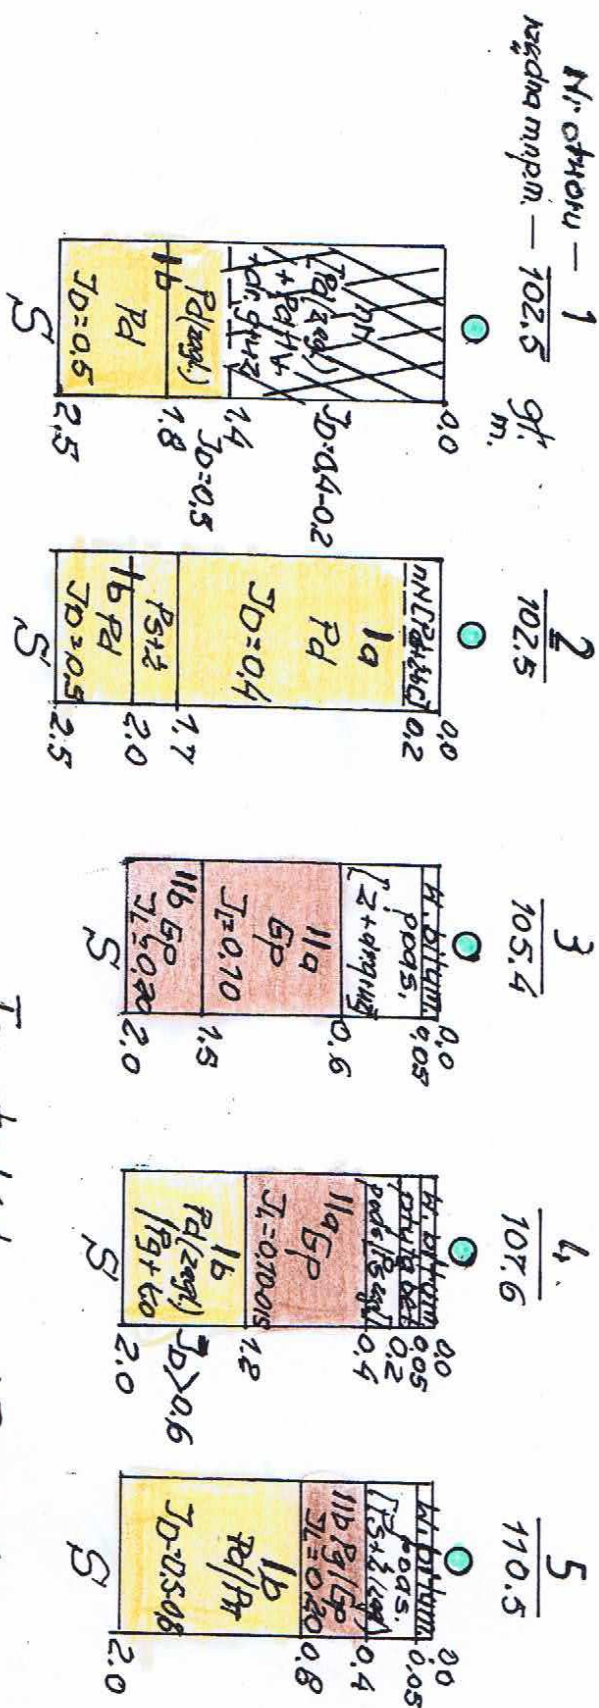 Nr otworu — 1
rzędna m.n.p.m. — 102.5
gł. m.
0.0
nN
Pd(zagl.)
+ Pd/H+
+dr. gruz
JD=0,4-0,2
1.4
Pd(zagl.)
JD=0.5
1.8
Ib
Pd
JD=0.5
2.5
S
2
102.5
0.0
0.2
Ia
Pd
JD=0,4
1.7
Ps+ż
2.0
Ib Pd
JD=0.5
2.5
S
3
105.4
0.0
N. bitum.
0.05
poas.
[ż+dr. gruz]
0.6
IIa
Gp
JL=0.10
1.5
IIb Gp
JL≤0.20
2.0
S
4
107.6
0.0
N. bitum
0.05
płyta bet
0.2
pods.
0.4
IIa Gp
JL=0.10-015
1.2
Ib
Pd(zagl.)
/Pg+Ko
JD>0.6
2.0
S
5
110.5
0.0
N. bitum
0.05
poas.
0.4
IIb Pg/Gp
JL=0.20
0.8
Ib
Pd/Pπ
2.0
S